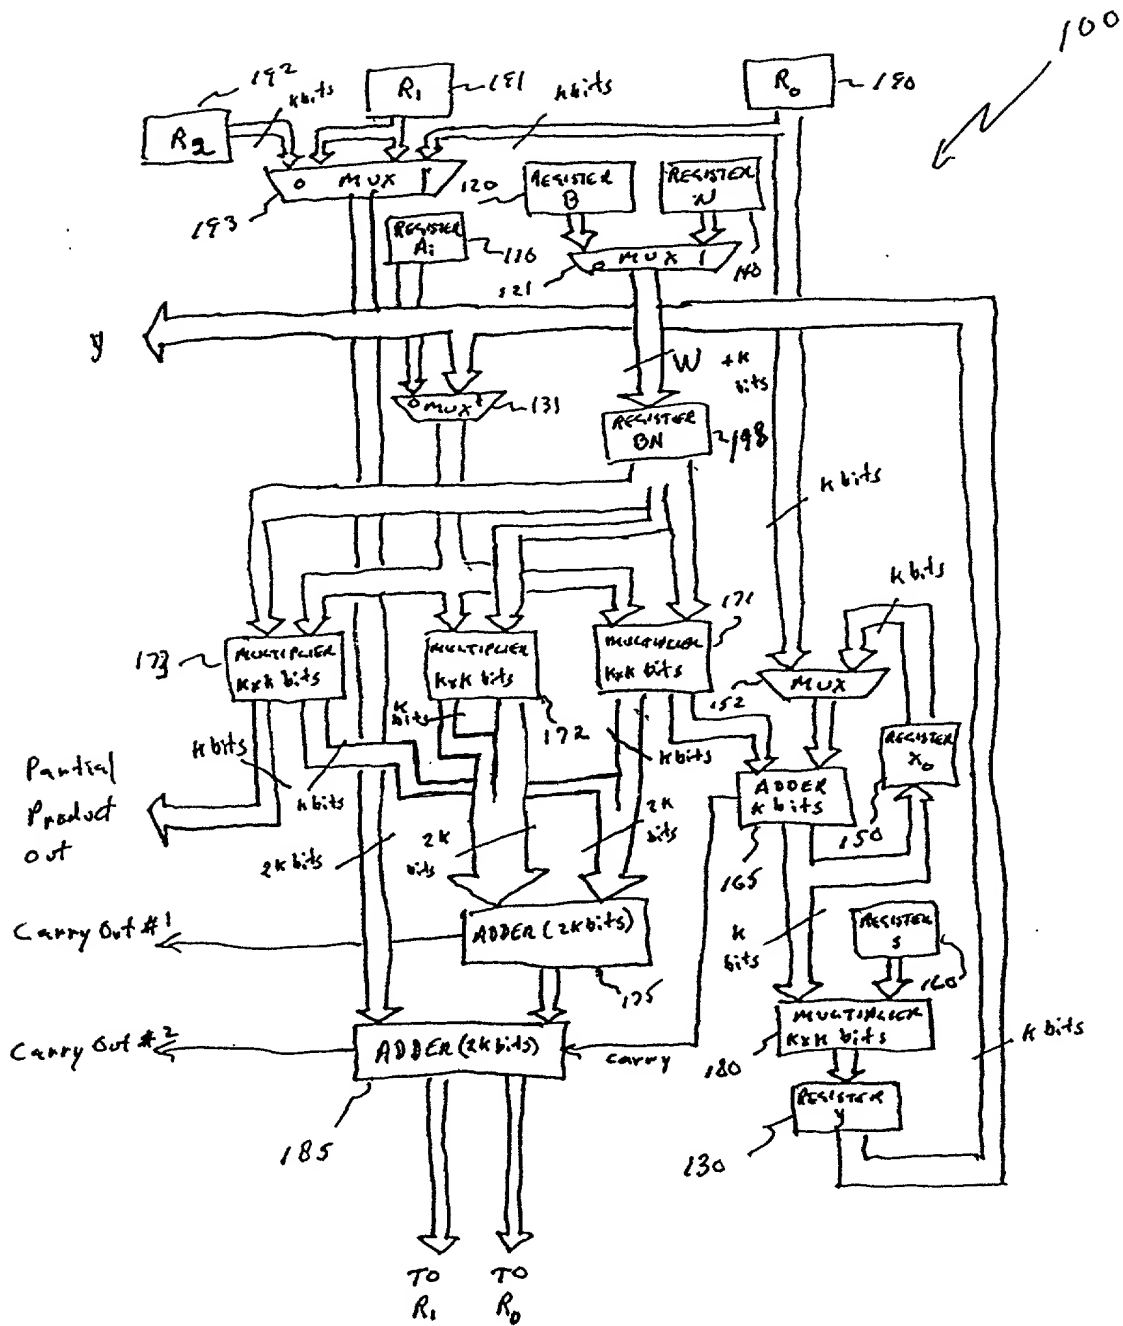 100
192
k bits
R1
191
k bits
R0
190
R2
0 MUX 1
193
120
REGISTER
B
REGISTER
N
REGISTER
Ai
110
0 MUX 1
121
140
y
W + k
bits
0 MUX 1
131
REGISTER
BN
198
k bits
k bits
171
173
MULTIPLIER
k x k bits
MULTIPLIER
k x k bits
MULTIPLIER
k x k bits
152
MUX
k
bits
172
k bits
REGISTER
X0
150
Partial
Product
out
k bits
k bits
2k bits
2k
bits
2k
bits
ADDER
k bits
165
Carry Out #1
ADDER (2k bits)
175
k
bits
REGISTER
S
160
Carry Out #2
ADDER (2k bits)
185
carry
180
MULTIPLIER
k x k bits
k bits
REGISTER
y
130
TO
R1
TO
R0